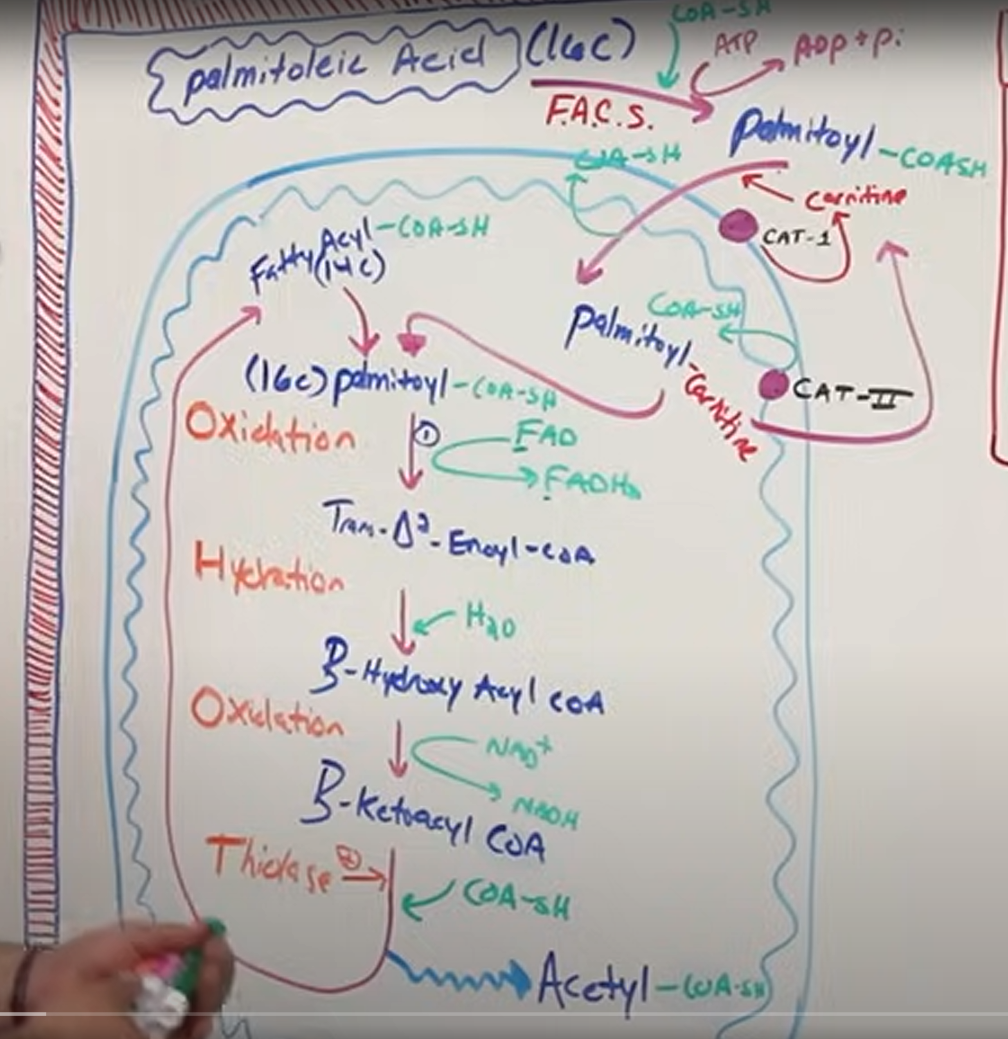 COA-SH
palmitoleic Acid (16C)
ATP
ADP + Pi
F.A.C.S.
Palmitoyl-COASH
COA-SH
Carnitine
CAT-1
Fatty Acyl-COA-SH
(14C)
COA-SH
palmitoyl-Carnitine
CAT-II
(16C) palmitoyl-COA-SH
Oxidation
1
FAD
FADH2
Trans-Δ2-Enoyl-COA
Hydration
H2O
β-Hydroxy Acyl COA
Oxidation
NAD+
NADH
β-Ketoacyl COA
Thiolase
COA-SH
Acetyl-COA-SH